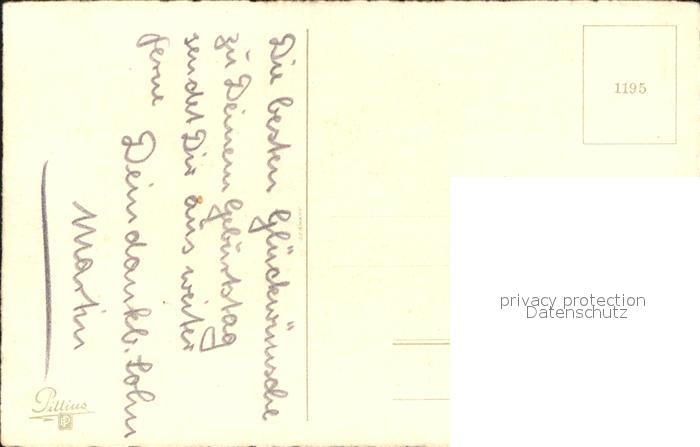 Die besten Glückwünsche
zu Deinem Geburtstag
sendet Dir aus weiter
Ferne
Dein dankb. Sohn
Martin
1195
privacy protection
Datenschutz
Pittius